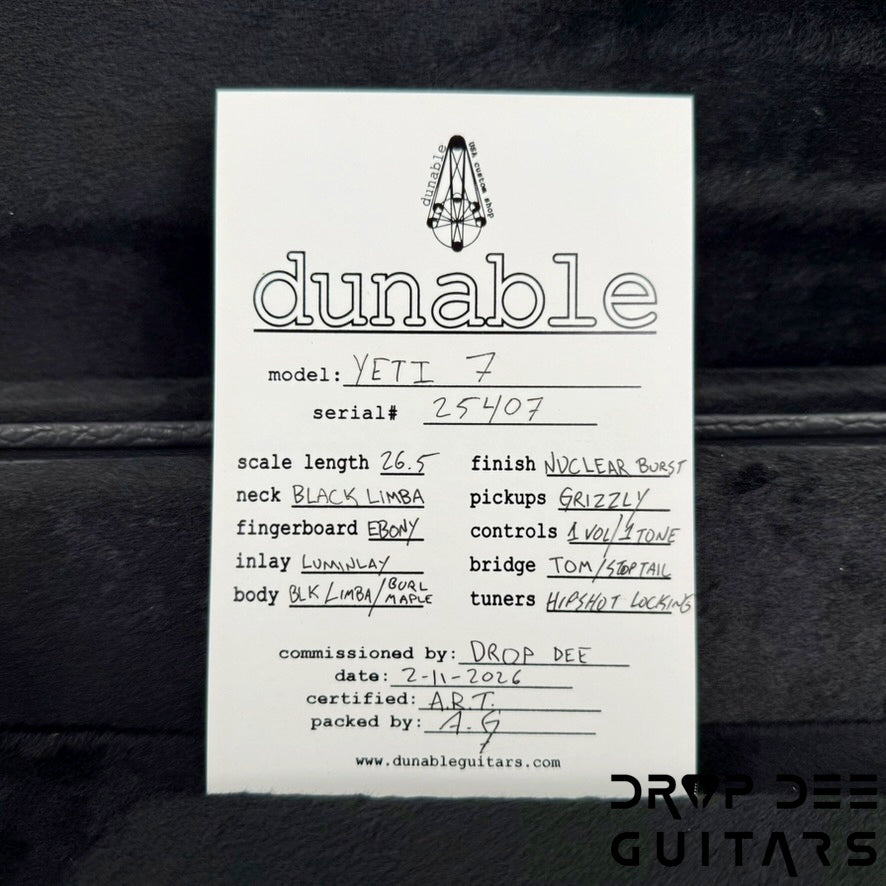 dunable
USA custom shop
dunable
model: YETI 7
serial# 25407
scale length 26.5
neck BLACK LIMBA
fingerboard EBONY
inlay LUMINLAY
body BLK LIMBA/BURL MAPLE
finish NUCLEAR BURST
pickups GRIZZLY
controls 1 VOL/1 TONE
bridge TOM/STOPTAIL
tuners HIPSHOT LOCKING
commissioned by: DROP DEE
date: 2-11-2026
certified: A.R.T.
packed by: A.G
www.dunableguitars.com
DROP DEE
GUITARS